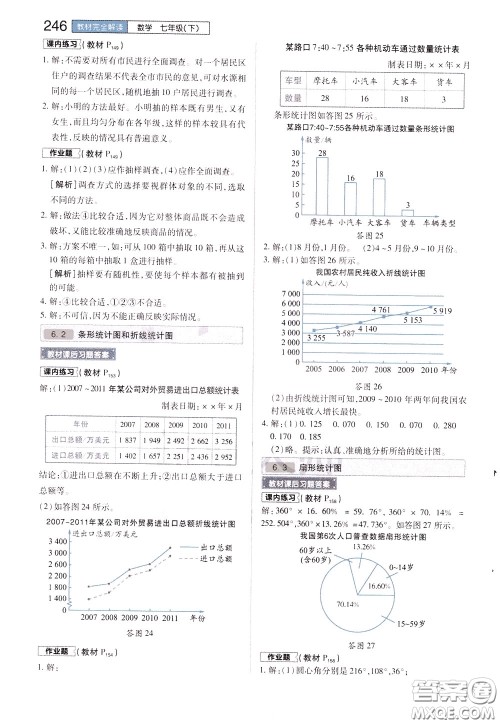 246 教材完全解读 数学 七年级(下)
课内练习 (教材 P149)
1. 解:不需要对所有市民进行全面调查. 对一个居民区
住户的调查不足以反映全市居民的意见,可对水源相
同的每一个居民区,随机地抽 10 户居民进行调查.
2. 解:小明的方法最好. 小明抽的样本既有男生,又有女
生,而且均匀分布在各年级,这样的样本较具有代表
性,反映的情况具有普遍意义.
作业题 (教材 P149)
1. 解:(1)(2)(3)应作抽样调查,(4)应作全面调查.
[解析]调查方式的选择要视群体对象的不同,选取
不同的方法.
2. 解:做法④比较合适,因为它对整体商品既不会造成太
大的浪费,又能比较准确地反映商品的情况.
3. 解:方案不唯一,如:可从 100 箱中抽取 10 箱,再从这
10 箱的每箱中抽取 1 盒进行抽样.
[解析]抽样要有随机性,要使每个个体都有被抽到
的可能.
4. 解:④比较合适,①②③不合适.
5. 解:不可信,因为不能正确反映实际情况.
6.2 条形统计图和折线统计图
教材课后习题答案
课内练习 (教材 P153)
1. 解:(1)2007~2011 年某公司对外贸易进出口总额统计表
制表日期:×年×月
年份 2007 2008 2009 2010 2011
出口总额/万美元 1 837 1 949 2 492 2 662 3 256
进口总额/万美元 1 402 1 657 2 251 2 436 2 952
结论:①进出口总额在不断上升;②出口总额大于进口
总额等.
(2)如答图 24 所示.
2007~2011年某公司对外贸易进出口总额折线统计图
进出口总额/万美元
3 400
3 000
2 600
2 200
1 800
1 400
0
出口总额
进口总额
2007 2008 2009 2010 2011 年份
答图 24
作业题 (教材 P154)
1. 解:
某路口 7:40~7:55 各种机动车通过数量统计表
制表日期:××年×月
车型 摩托车 小汽车 大客车 货车
数量 28 16 18 3
条形统计图如答图 25 所示.
某路口7:40~7:55各种机动车通过数量条形统计图
数量/辆
30
25
20
15
10
5
0
28
16
18
3
摩托车 小汽车 大客车 货车 车辆类型
答图 25
2. 解:(1)8月份,1月份. (2)4~5月份,9~10月份.
3. 解:(1)如答图 26 所示.
我国农村居民纯收入折线统计图
收入/(元)
7 000
6 000
5 000
4 000
3 000
2 000
1 000
0
3 255
3 587
4 761
5 919
2005 2006 2007 2008 2009 2010 年份
答图 26
(2)由折线统计图可知,2009~2010 年两年间我国农
村居民纯收入增长最快.
4. 解:(1)0.125 0.070 0.180 0.150 0.030
0.170 0.185
(2)略. 提示:认真、准确地分析所给的统计图.
6.3 扇形统计图
教材课后习题答案
课内练习 (教材 P158)
解:360°×16.60%=59.76°,360°×70.14%=
252.504°,360°×13.26%=47.736°. 如答图 27 所示.
我国第6次人口普查数据扇形统计图
60岁以上
(含60岁)
13.26%
0~14岁
16.60%
70.14%
15~59岁
答图 27
作业题 (教材 P158)
1. 解:(1)圆心角分别是216°,108°,36°;
答案圈
MXQE.COM